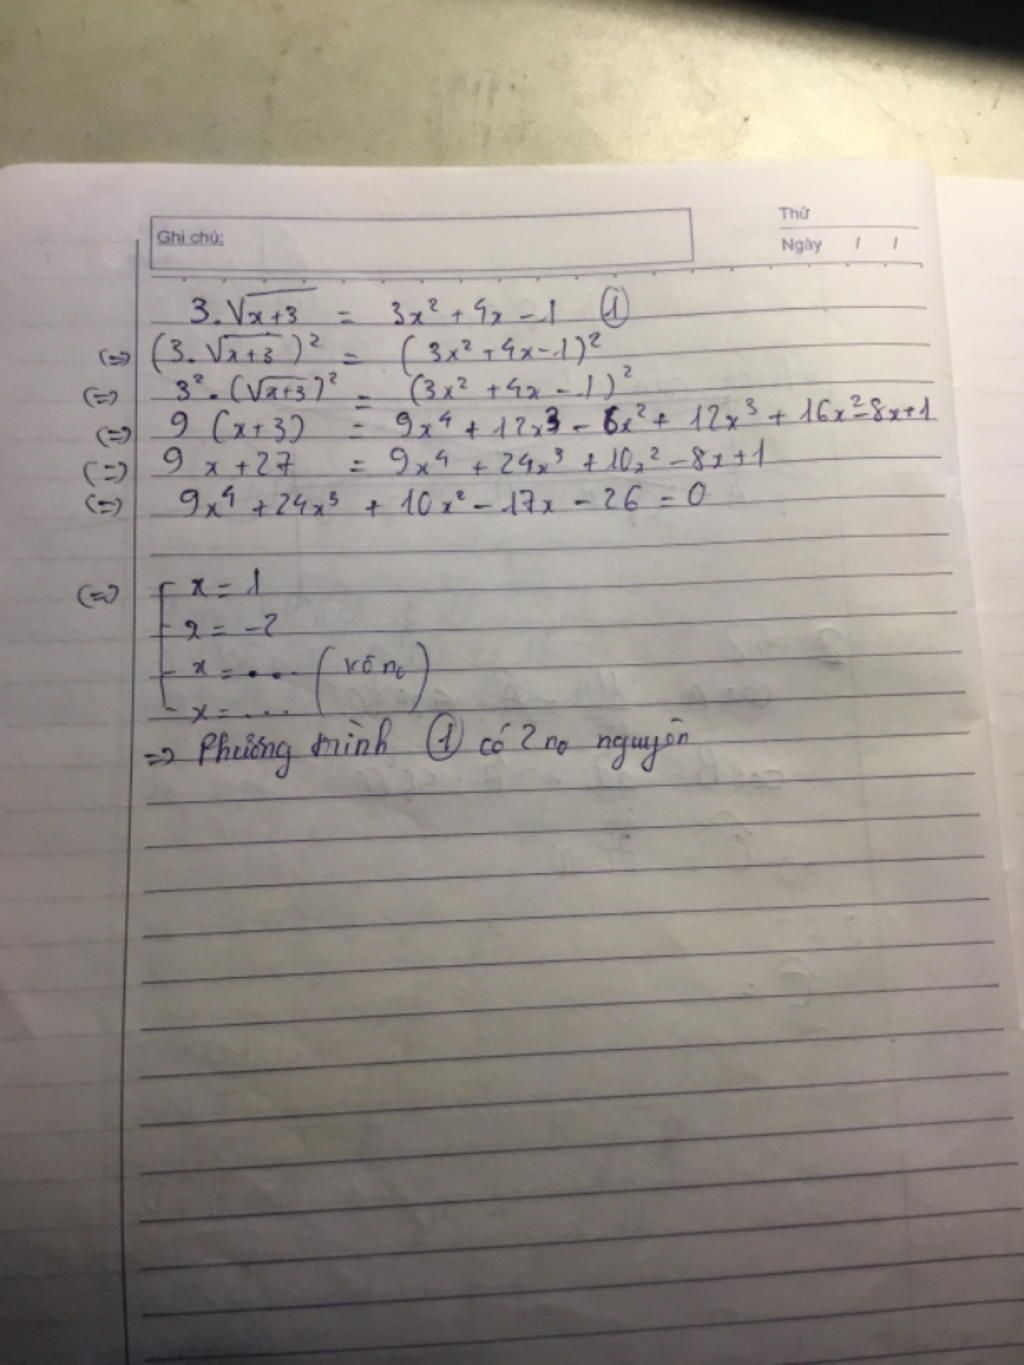 Ghi chú:
Thứ
Ngày / /
3.√x+3 = 3x² + 4x - 1 ①
(=) (3.√x+3)² = (3x² + 4x - 1)²
(=) 3².(√x+3)² = (3x² + 4x - 1)²
(=) 9 (x+3) = 9x⁴ + 12x3 - 6x² + 12x³ + 16x² - 8x + 1
(=) 9x + 27 = 9x⁴ + 24x³ + 10x² - 8x + 1
(=) 9x⁴ + 24x³ + 10x² - 17x - 26 = 0
(=) x = 1
x = -2
x = .... (vô no)
x = ...
=> Phương trình ① có 2 no nguyên